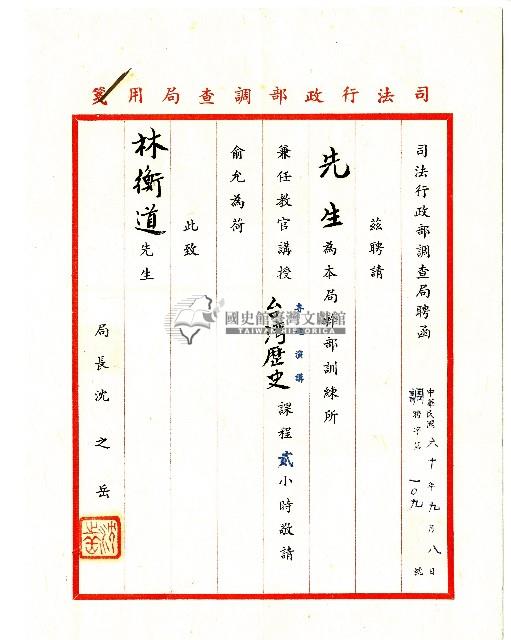 司法行政部調查局用箋
司法行政部調查局聘函
中華民國六十年九月八日
調聘字第一〇九號
茲聘請
先生為本局幹部訓練所
兼任教官講授台灣歷史課程貳小時敬請
專題演講
俞允為荷
此致
林衡道先生
局長沈之岳
國史館臺灣文獻館
TAIWAN HISTORICA